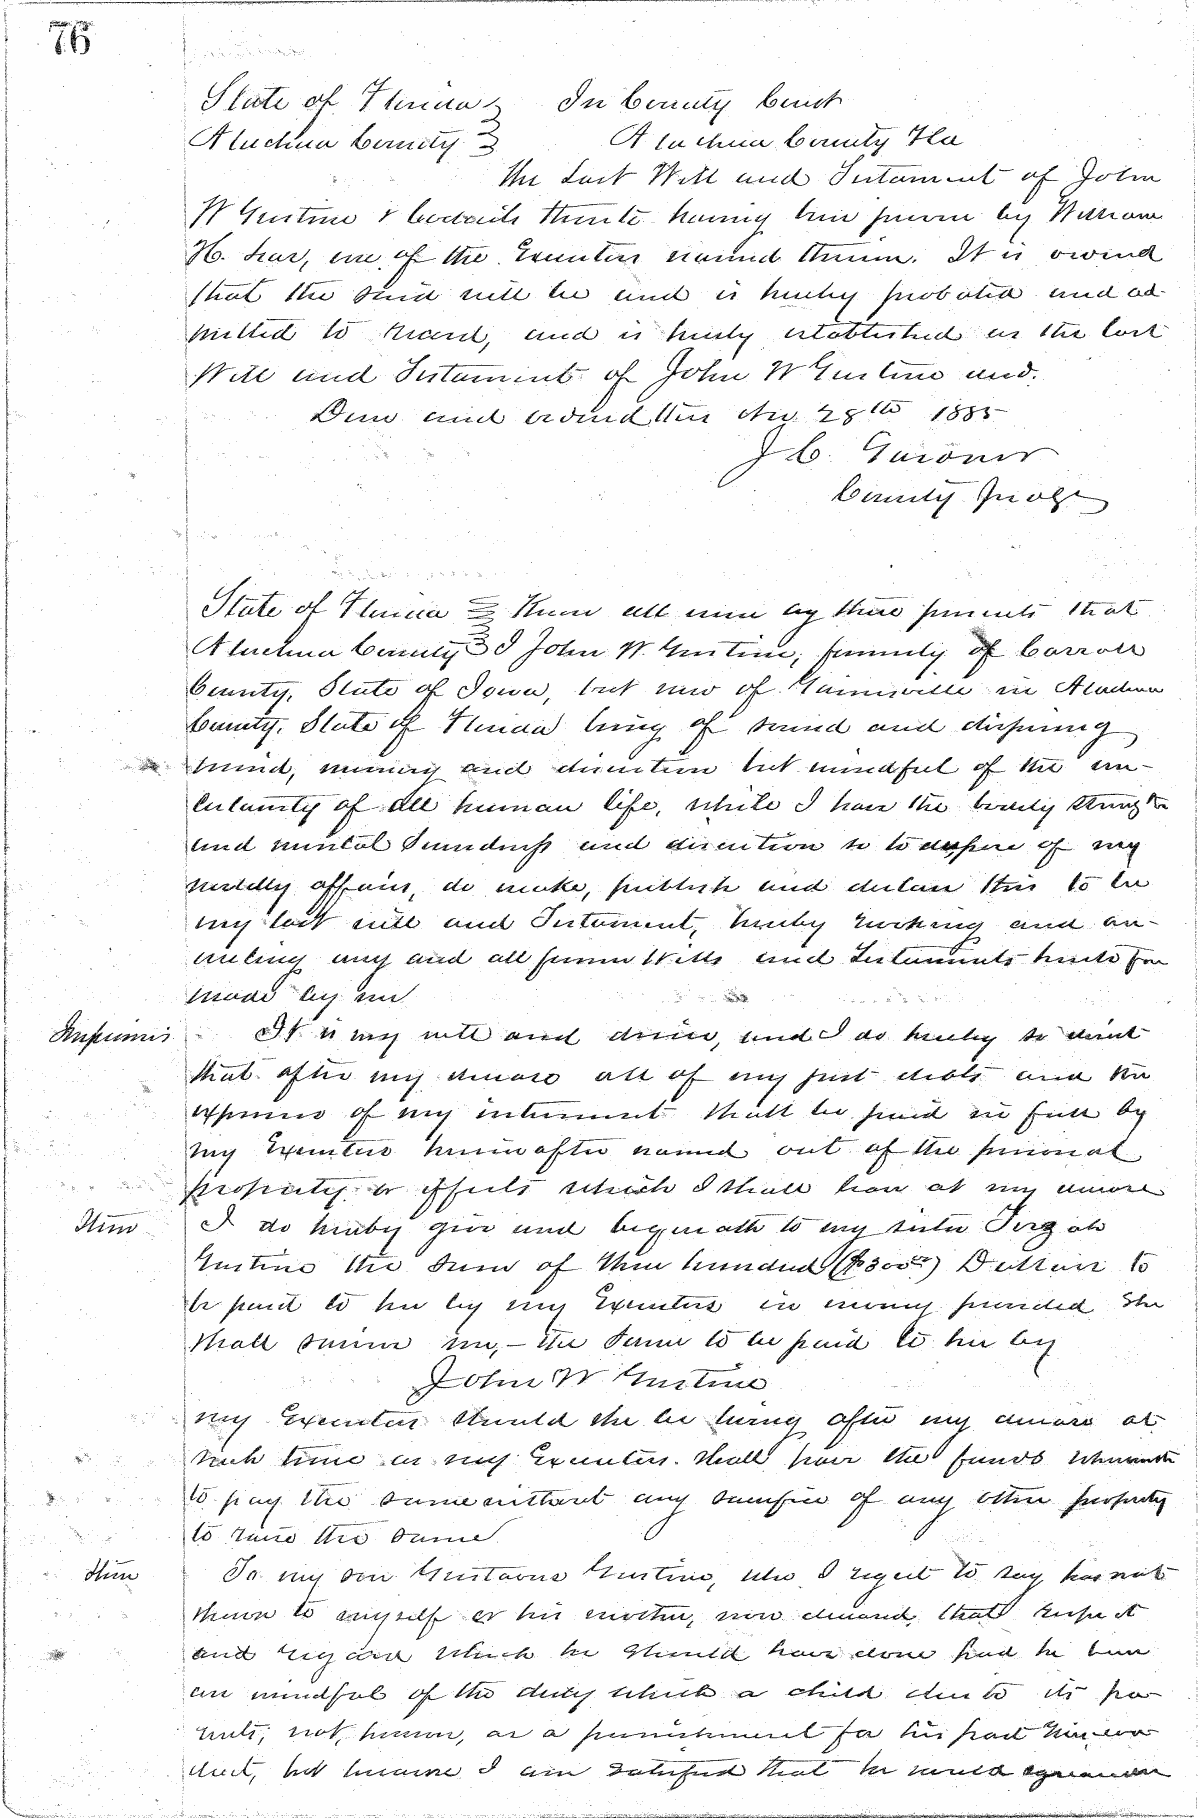 76
State of Florida } In County Court
Alachua County } Alachua County Fla
The Last Will and Testament of John
W Gustine & Codicils thereto having been proven by William
H. one of the Executors named therein. It is ordered
that the said will be and is hereby probated and ad
mitted to record, and is hereby established as the last
Will and Testament of John W Gustine
Done and ordered this 28th 1885
J C. Gardner
County Judge
State of Florida } Know all men by these presents that
Alachua County } I John W. Gustine, formerly of Carroll
County, State of Iowa, but now of Gainesville in Alachua
County, State of Florida being of sound and disposing
mind, memory and discretion but mindful of the un-
certainty of all human life, while I have the bodily strength
and mental soundness and discretion so to dispose of my
worldly affairs, do make, publish and declare this to be
my last will and Testament, hereby revoking and an-
nuling any and all former Wills and Testaments heretofore
made by me
Imprimis It is my will and desire, and I do hereby so direct
that after my decease all of my just debts and the
expenses of my interment shall be paid in full by
my Executors hereinafter named out of the personal
property or effects which I shall have at my decease
Item I do hereby give and bequeath to my sister Tirzah
Gustine the Sum of three hundred ($300.00) Dollars to
be paid to her by my Executors in money provided She
shall survive me, – the same to be paid to her by
John W Gustine
my Executors should she be living after my decease at
such time as my Executors shall have the funds wherewith
to pay the same without any sacrifice of any other property
to raise the same
Item To my son Gustavus Gustine, who I regret to say has not
shown to myself or his mother, now deceased, that respect
and regard which he should have done had he been
as mindful of the duty which a child owes to its pa-
rents; not, however, as a punishment for his past
duct, but because I am satisfied that he would squander